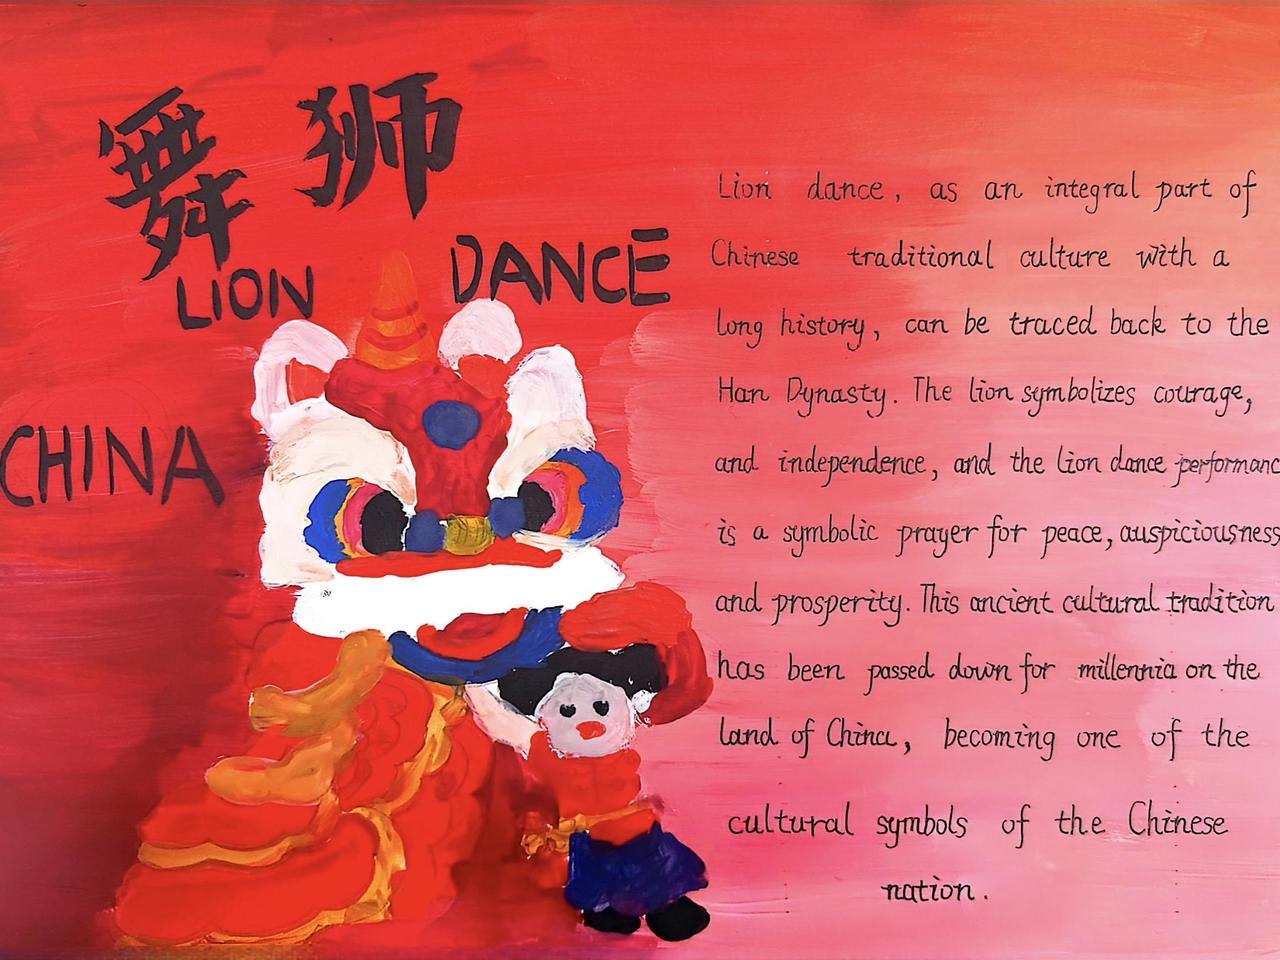 舞狮
LION DANCE
CHINA
Lion dance, as an integral part of
Chinese traditional culture with a
long history, can be traced back to the
Han Dynasty. The lion symbolizes courage,
and independence, and the lion dance performanc
is a symbolic prayer for peace, auspiciousness
and prosperity. This ancient cultural tradition
has been passed down for millennia on the
land of China, becoming one of the
cultural symbols of the Chinese
nation.